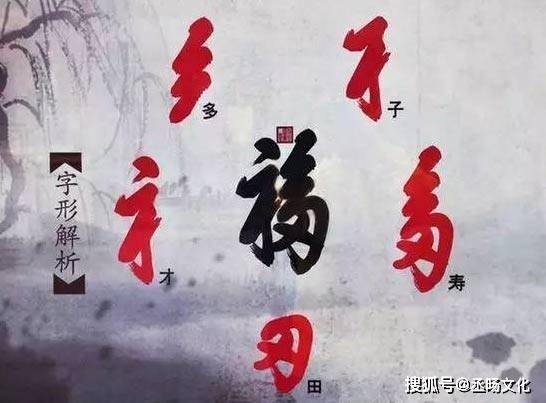 多
子
福
才
寿
田
【字形解析】
搜狐号@丞旸文化